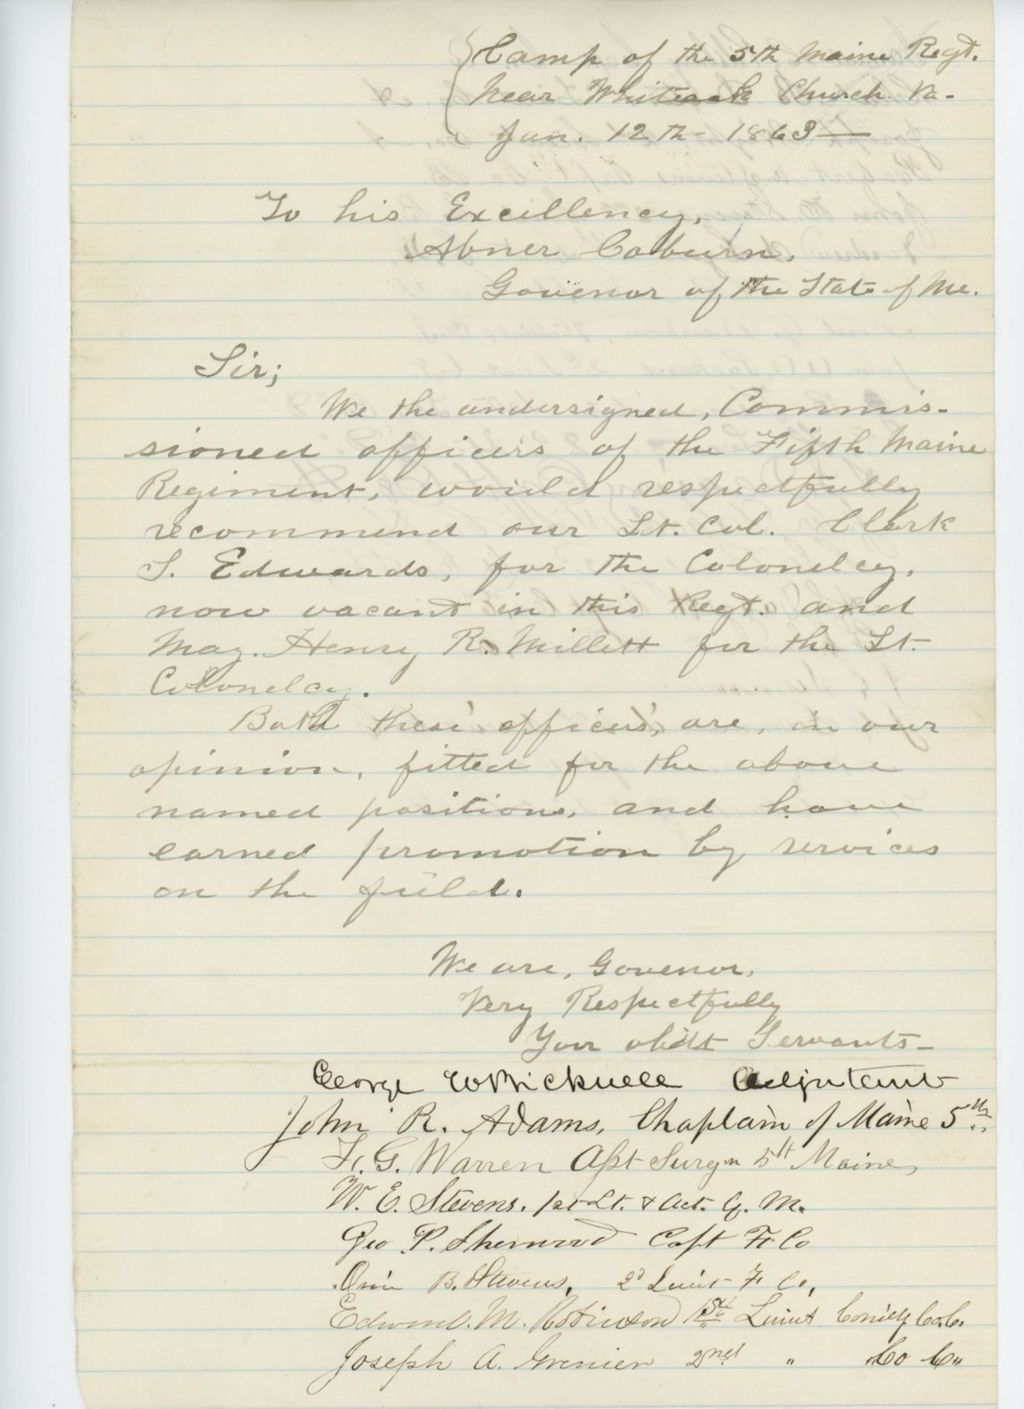 Camp of the 5th Maine Regt.
Near White Oak Church Va-
Jan. 12th - 1863 —
To his Excellency,
Abner Coburn,
Govenor of the State of Me.
Sir;
We the undersigned, Commis-
sioned officers of the Fifth Maine
Regiment, would respectfully
recommend our Lt. Col. Clark
S. Edwards, for the Colonelcy,
now vacant in this Regt. and
Maj. Henry R. Millett for the Lt.
Colonelcy.
Both these officers, are, in our
opinion, fitted for the above
named positions, and have
earned promotion by services
on the field.
We are, Govenor,
Very Respectfully
Your obdt Servants -
George W Bicknell Adjutant
John R. Adams, Chaplain of Maine 5th.
F. G. Warren Asst Surgn 5th Maine,
W. E. Stevens, 1st Lt. & Act. Q. M.
Geo P. Sherwood Capt F. Co
Orrin B. Stevens, 2d Lieut F. Co,
Edward. M. Robinson 1st Lieut Co. C.
Joseph A. Grenier 2nd " Co C"